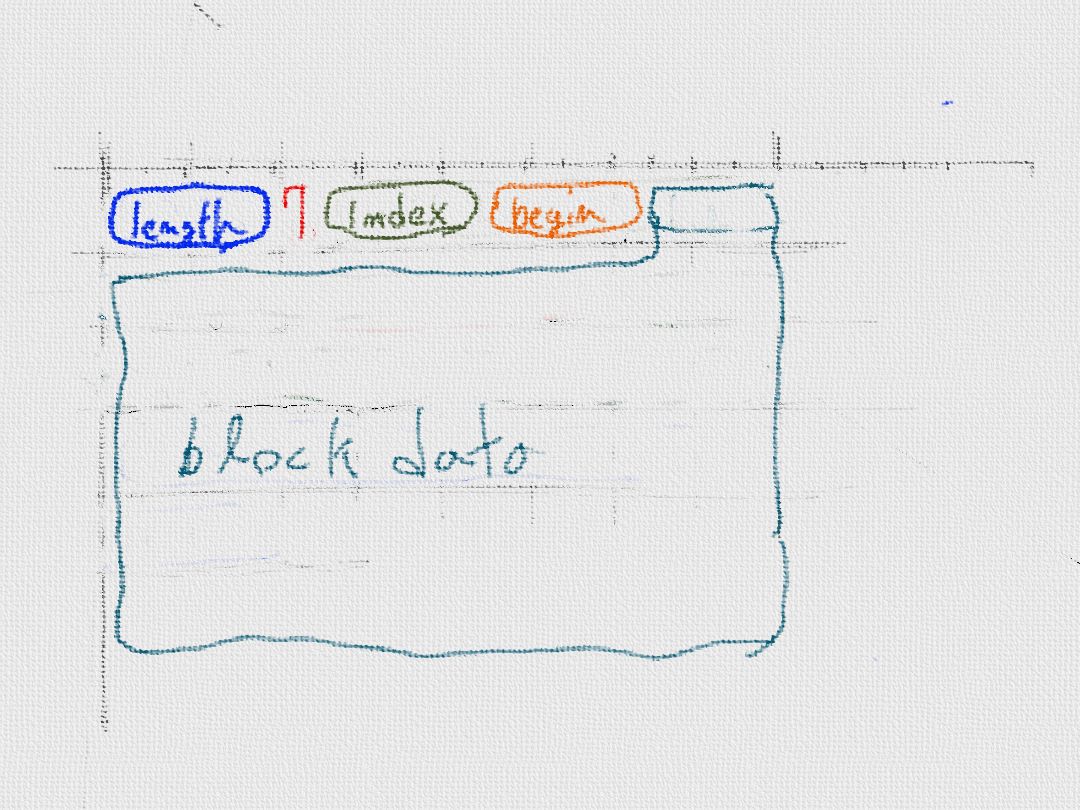 length 7 Index begin
block data